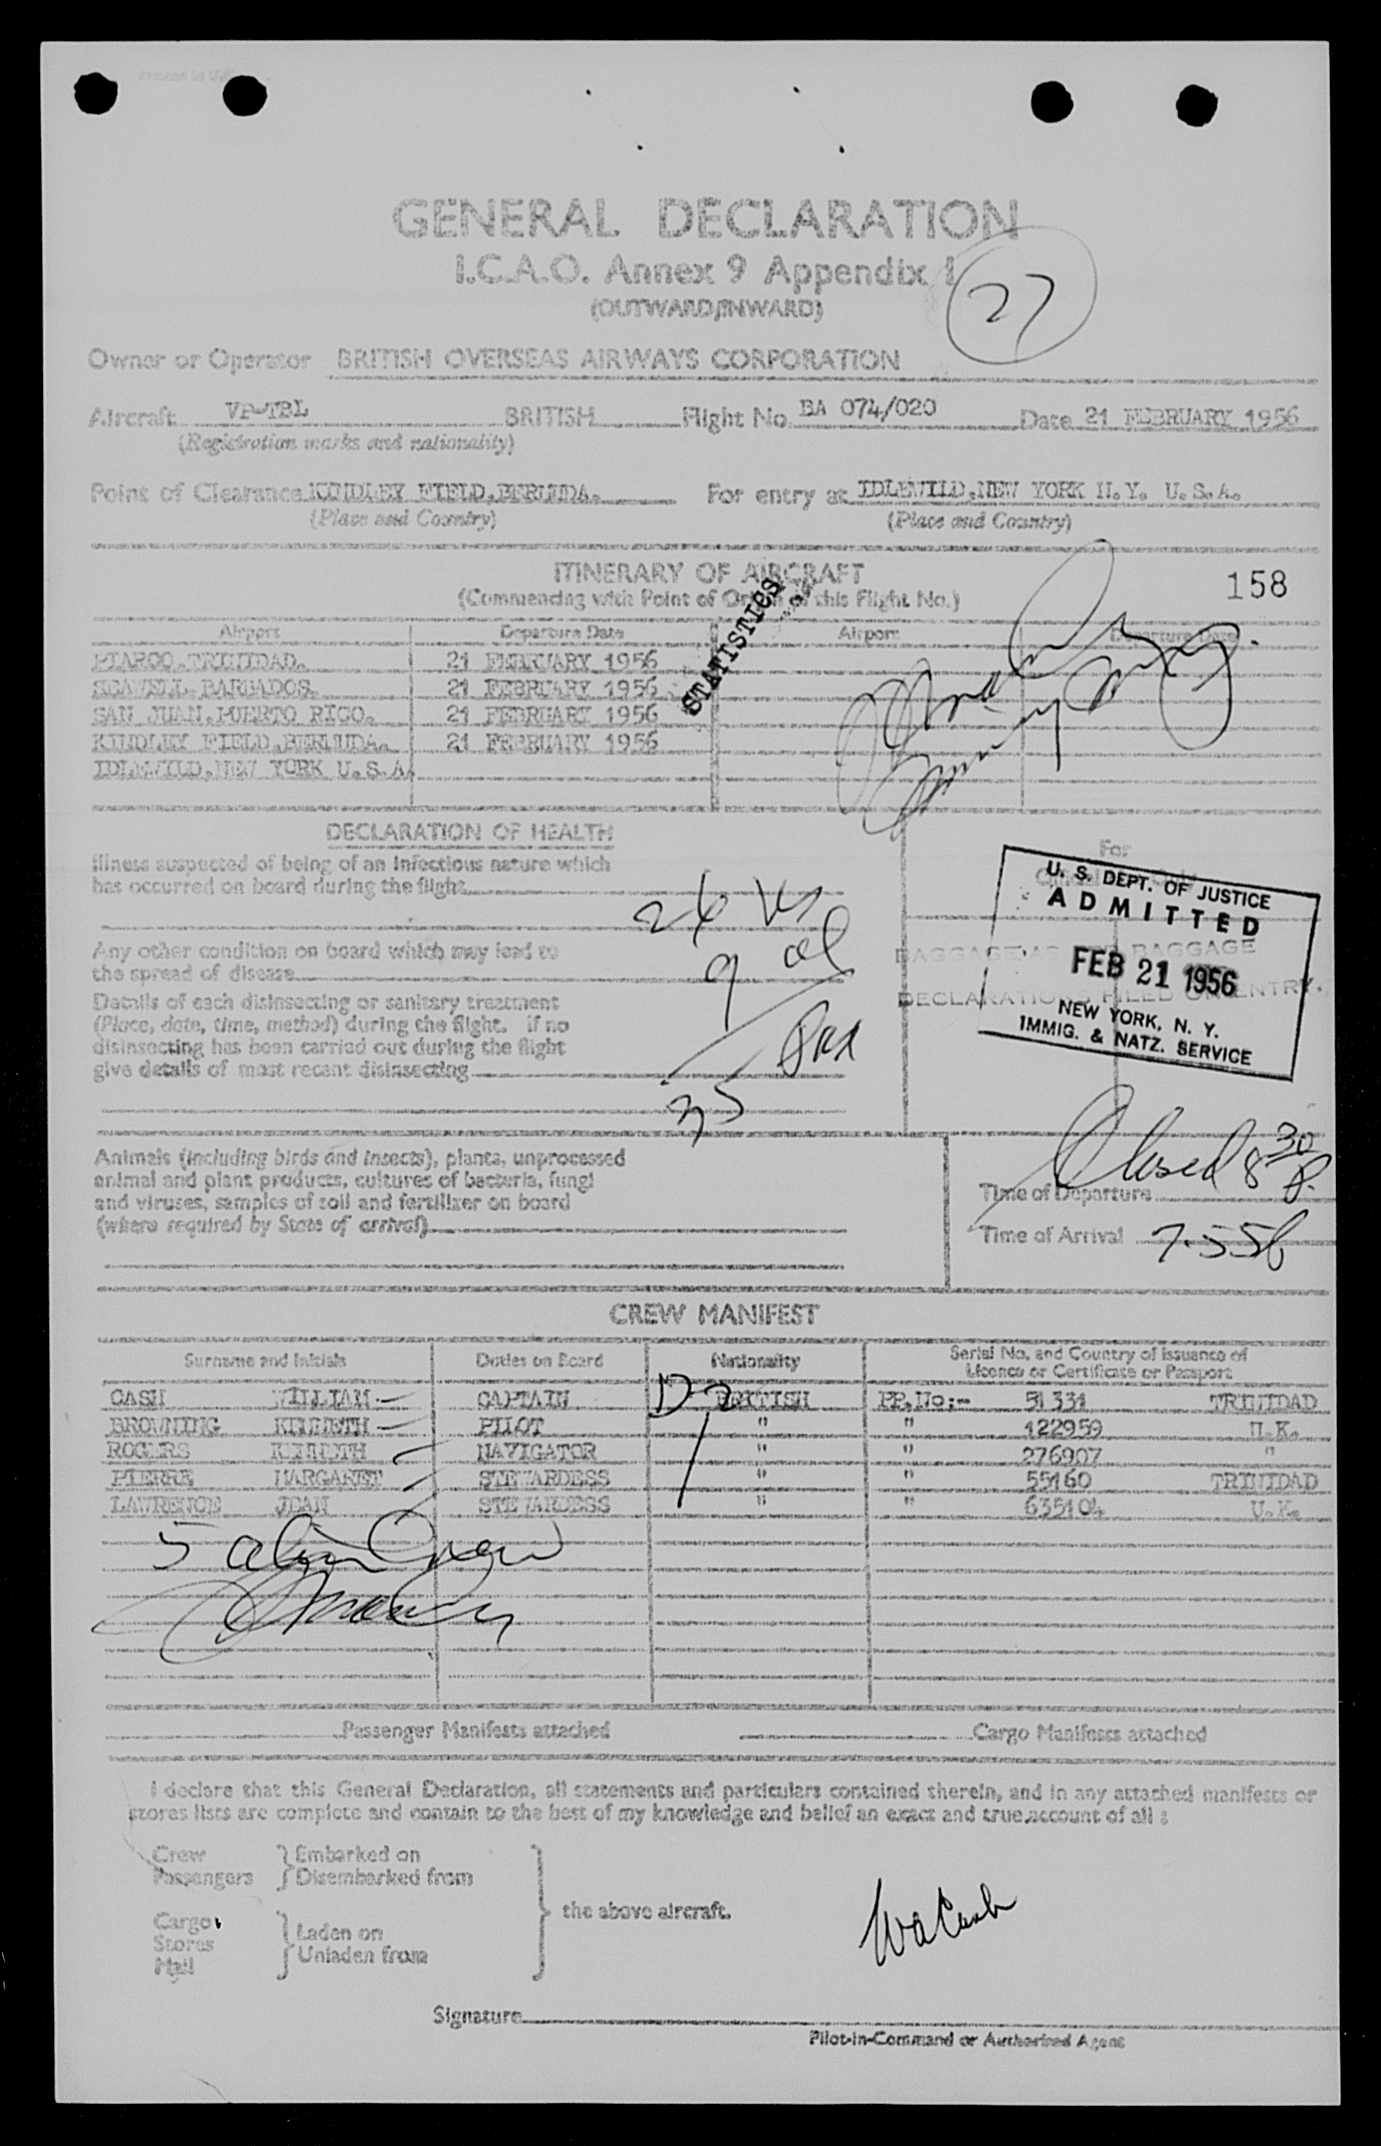 GENERAL DECLARATION
I.C.A.O. Annex 9 Appendix 1
(OUTWARD/INWARD)
27
Owner or Operator BRITISH OVERSEAS AIRWAYS CORPORATION
Aircraft VP-TBL BRITISH Flight No. BA 074/020 Date 21 FEBRUARY 1956
(Registration marks and nationality)
Point of Clearance KINDLEY FIELD, BERMUDA. For entry at IDLEWILD, NEW YORK N.Y. U.S.A.
(Place and Country) (Place and Country)
ITINERARY OF AIRCRAFT
158
(Commencing with Point of Origin of this Flight No.)
STATISTICS
Airport Departure Date Airport Departure Date
PIARCO, TRINIDAD. 21 FEBRUARY 1956
SEAWELL, BARBADOS. 21 FEBRUARY 1956
SAN JUAN, PUERTO RICO. 21 FEBRUARY 1956
KINDLEY FIELD, BERMUDA. 21 FEBRUARY 1956
IDLEWILD, NEW YORK U.S.A.
DECLARATION OF HEALTH
For
Illness suspected of being of an infectious nature which
has occurred on board during the flight
Any other condition on board which may lead to
the spread of disease
Details of each disinsecting or sanitary treatment
(Place, date, time, method) during the flight. If no
disinsecting has been carried out during the flight
give details of most recent disinsecting
26 us
9 al
35 Pax
U. S. DEPT. OF JUSTICE
ADMITTED
FEB 21 1956
NEW YORK, N. Y.
IMMIG. & NATZ. SERVICE
BAGGAGE AS PER BAGGAGE
DECLARATIONS FILED ON ENTRY.
Animals (including birds and insects), plants, unprocessed
animal and plant products, cultures of bacteria, fungi
and viruses, samples of soil and fertilizer on board
(where required by State of arrival)
Closed 8 30 P.
Time of Departure
Time of Arrival 7.55 P
CREW MANIFEST
Surname and Initials Duties on Board Nationality Serial No. and Country of issuance of
Licence or Certificate or Passport
CASH WILLIAM CAPTAIN BRITISH PP.No:- 51331 TRINIDAD
BROWNING KENNETH PILOT " " 122959 U.K.
ROGERS KENNETH NAVIGATOR " " 276907 "
PIERRE MARGARET STEWARDESS " " 55160 TRINIDAD
LAWRENCE JOAN STEWARDESS " " 635104 U.K.
D-2
5 alien Crew
Passenger Manifests attached Cargo Manifests attached
I declare that this General Declaration, all statements and particulars contained therein, and in any attached manifests or
stores lists are complete and contain to the best of my knowledge and belief an exact and true account of all :
Crew
Passengers
Embarked on
Disembarked from
Cargo
Stores
Mail
Laden on
Unladen from
the above aircraft.
Wa Cash
Signature
Pilot-in-Command or Authorised Agent